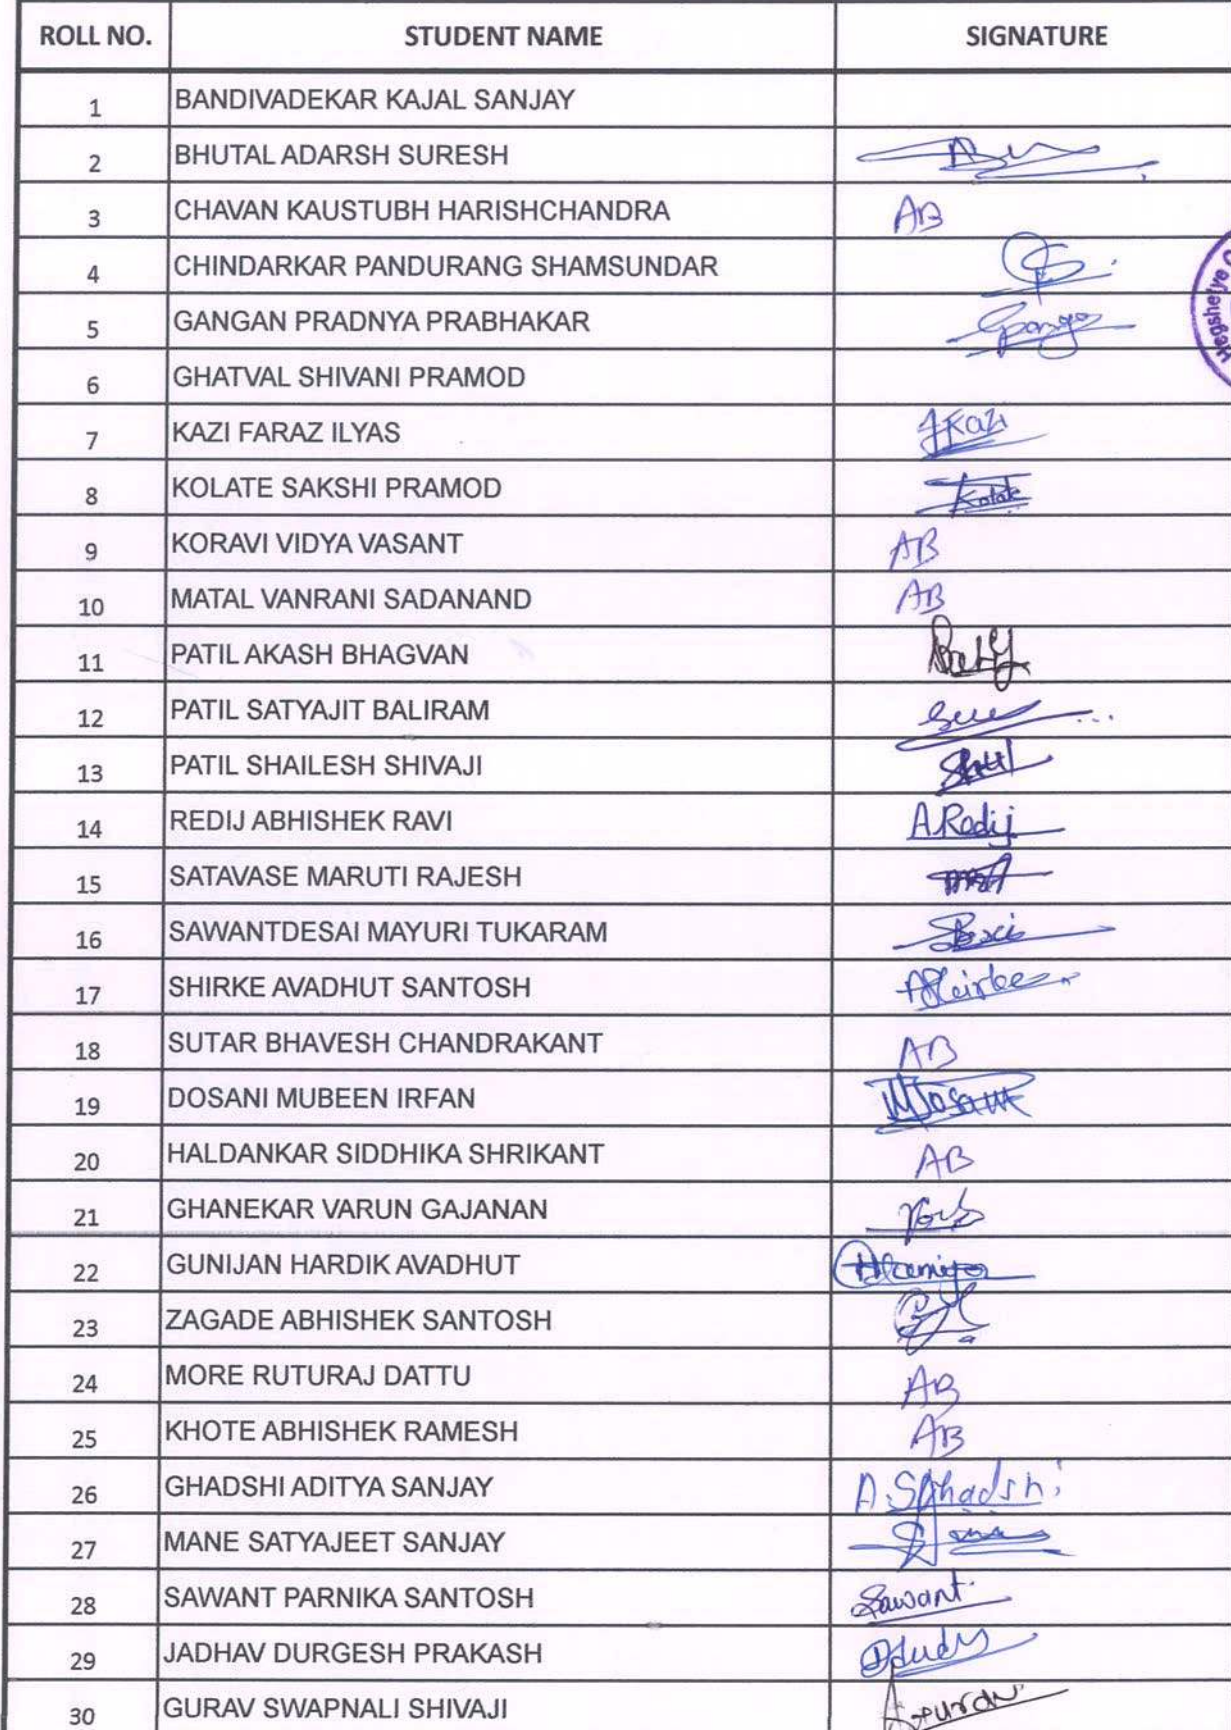 ROLL NO. STUDENT NAME SIGNATURE
1 BANDIVADEKAR KAJAL SANJAY
2 BHUTAL ADARSH SURESH
3 CHAVAN KAUSTUBH HARISHCHANDRA AB
4 CHINDARKAR PANDURANG SHAMSUNDAR
5 GANGAN PRADNYA PRABHAKAR
6 GHATVAL SHIVANI PRAMOD
7 KAZI FARAZ ILYAS FKazi
8 KOLATE SAKSHI PRAMOD Kolate
9 KORAVI VIDYA VASANT AB
10 MATAL VANRANI SADANAND AB
11 PATIL AKASH BHAGVAN
12 PATIL SATYAJIT BALIRAM
13 PATIL SHAILESH SHIVAJI
14 REDIJ ABHISHEK RAVI A.Redij
15 SATAVASE MARUTI RAJESH
16 SAWANTDESAI MAYURI TUKARAM
17 SHIRKE AVADHUT SANTOSH AShirke
18 SUTAR BHAVESH CHANDRAKANT AB
19 DOSANI MUBEEN IRFAN MDosani
20 HALDANKAR SIDDHIKA SHRIKANT AB
21 GHANEKAR VARUN GAJANAN
22 GUNIJAN HARDIK AVADHUT
23 ZAGADE ABHISHEK SANTOSH
24 MORE RUTURAJ DATTU AB
25 KHOTE ABHISHEK RAMESH AB
26 GHADSHI ADITYA SANJAY A.SGhadshi
27 MANE SATYAJEET SANJAY
28 SAWANT PARNIKA SANTOSH Sawant
29 JADHAV DURGESH PRAKASH
30 GURAV SWAPNALI SHIVAJI